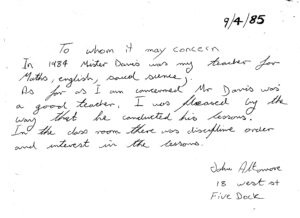 9/4/85
To whom it may concern
In 1984 Mister Davis was my teacher for
Maths, english, social science,
As for as I am concerned Mr Davis was
a good teacher. I was pleased by the
way that he conducted his lessons.
In the class room there was discipline order
and interest in the lessons.
John Altomore
18 west st
Five Dock